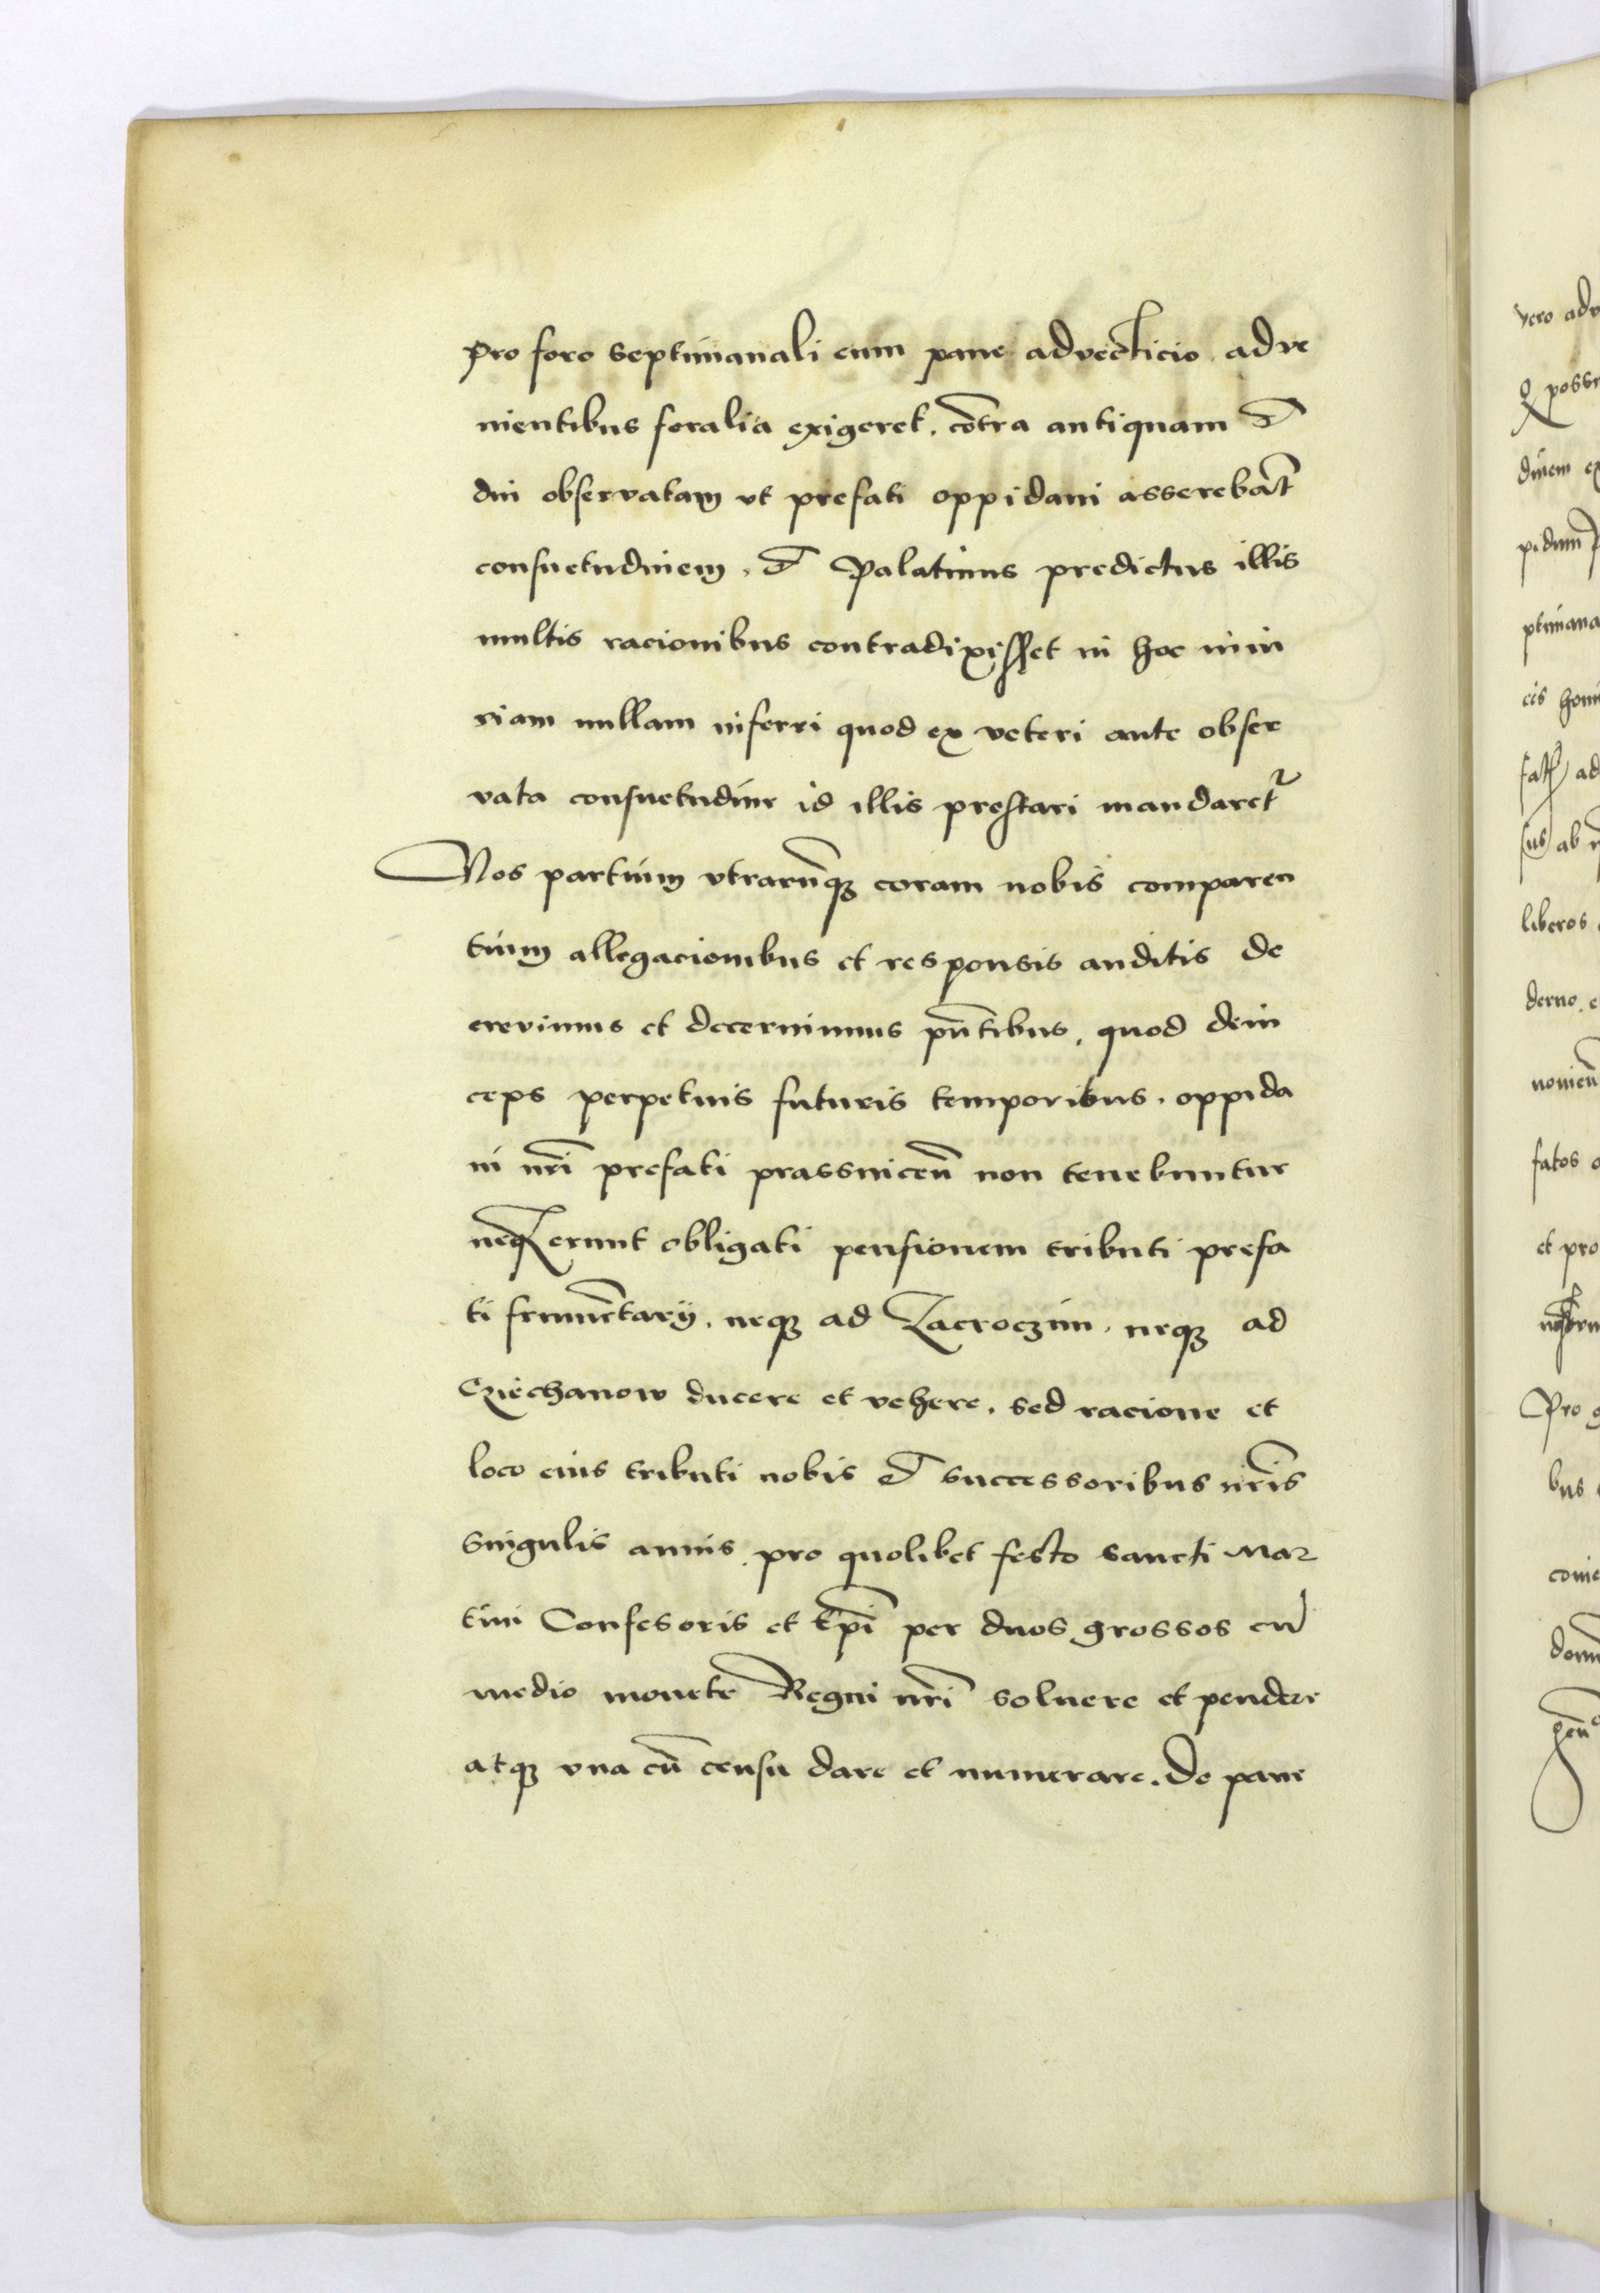 pro foro septimanali cum pane advecticio adve
nientibus foralia exigeret. cōtra antiquam et
diu observatam vt prefati oppidani asserebāt
consuetudinem. et Palatinus predictus illis
multis racionibus contradixisset in hoc iniu
riam nullam inferri quod ex veteri ante obser
vata consuetudine id illis prestari mandaret᷑
Nos partium vtrarūqꝫ coram nobis comparen
tium allegacionibus et responsis auditis de
crevimus et decernimus pn̄tibus. quod dein
ceps perpetuis futuris temporibus. oppida
ni nr̄i prefati prassnicen̄ non tenebuntur
neqꝫ erunt obligati pensionem tributi prefa
ti frumēntarij. neqꝫ ad Zacroczim. neqꝫ ad
Cziechanow ducere et vehere. sed racione et
loco eius tributi nobis et successoribus nr̄is
singulis annis. pro quolibet festo sancti Mar
tini Confesoris et Ep̄i per duos grossos cū
medio monete Regni nr̄i soluere et pendere
atqꝫ vna cū censu dare et numerare. de pane
vero adv
possi
dinem ex
pidum
ptimana
cis homi
ad
sus ab
liberos
derno. e
fatos
et pro
Pro
bus